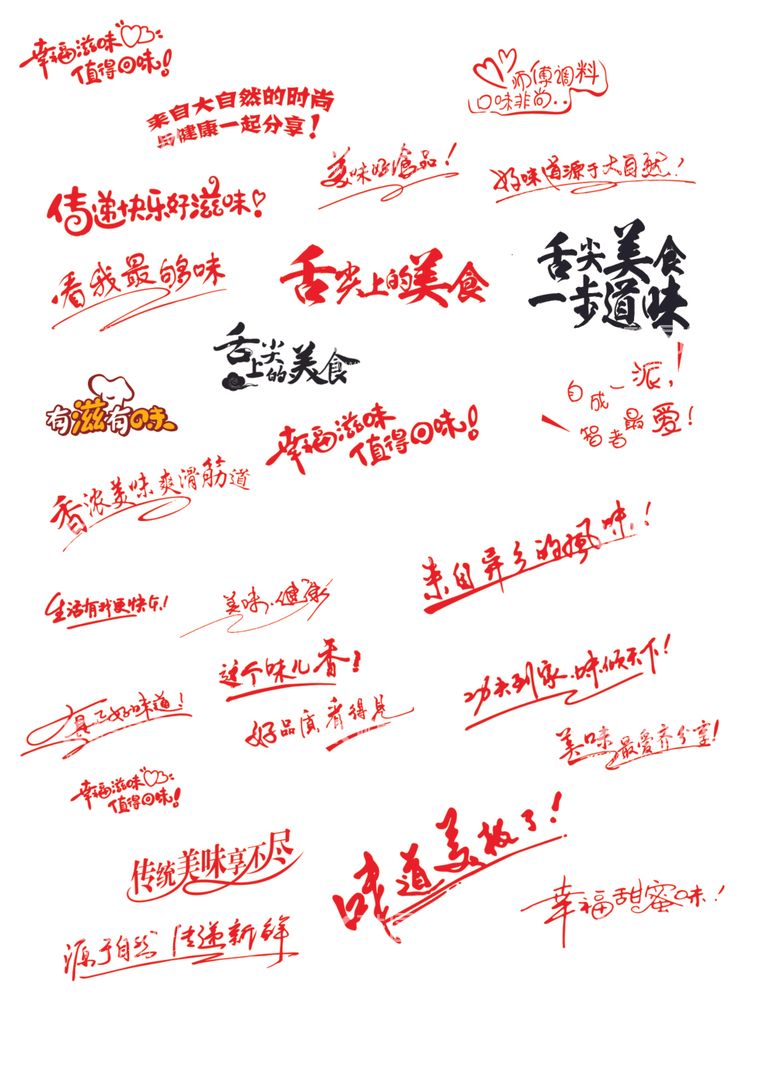 幸福滋味
值得回味!
师傅调料
口味非尚..
来自大自然的时尚
与健康一起分享!
美味好食品!
好味道源于大自然!
传递快乐好滋味!
看我最够味
舌尖上的美食
舌尖美食
一步道味
舌尖
上的美食
有滋有味
自成一派,
智者最爱!
幸福滋味
值得回味!
香浓美味爽滑筋道
来自异乡的風味!
生活有我更快乐!
美味.健康
这个味儿香!
功夫到家.味倾天下!
好味道!
好品质看得见
美味最爱齐分享!
幸福滋味
值得回味!
传统美味享不尽
味道美极了!
幸福甜蜜味!
源于自然 传递新鲜